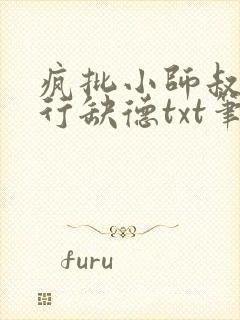 疯批小师叔
行缺德txt笔
furu